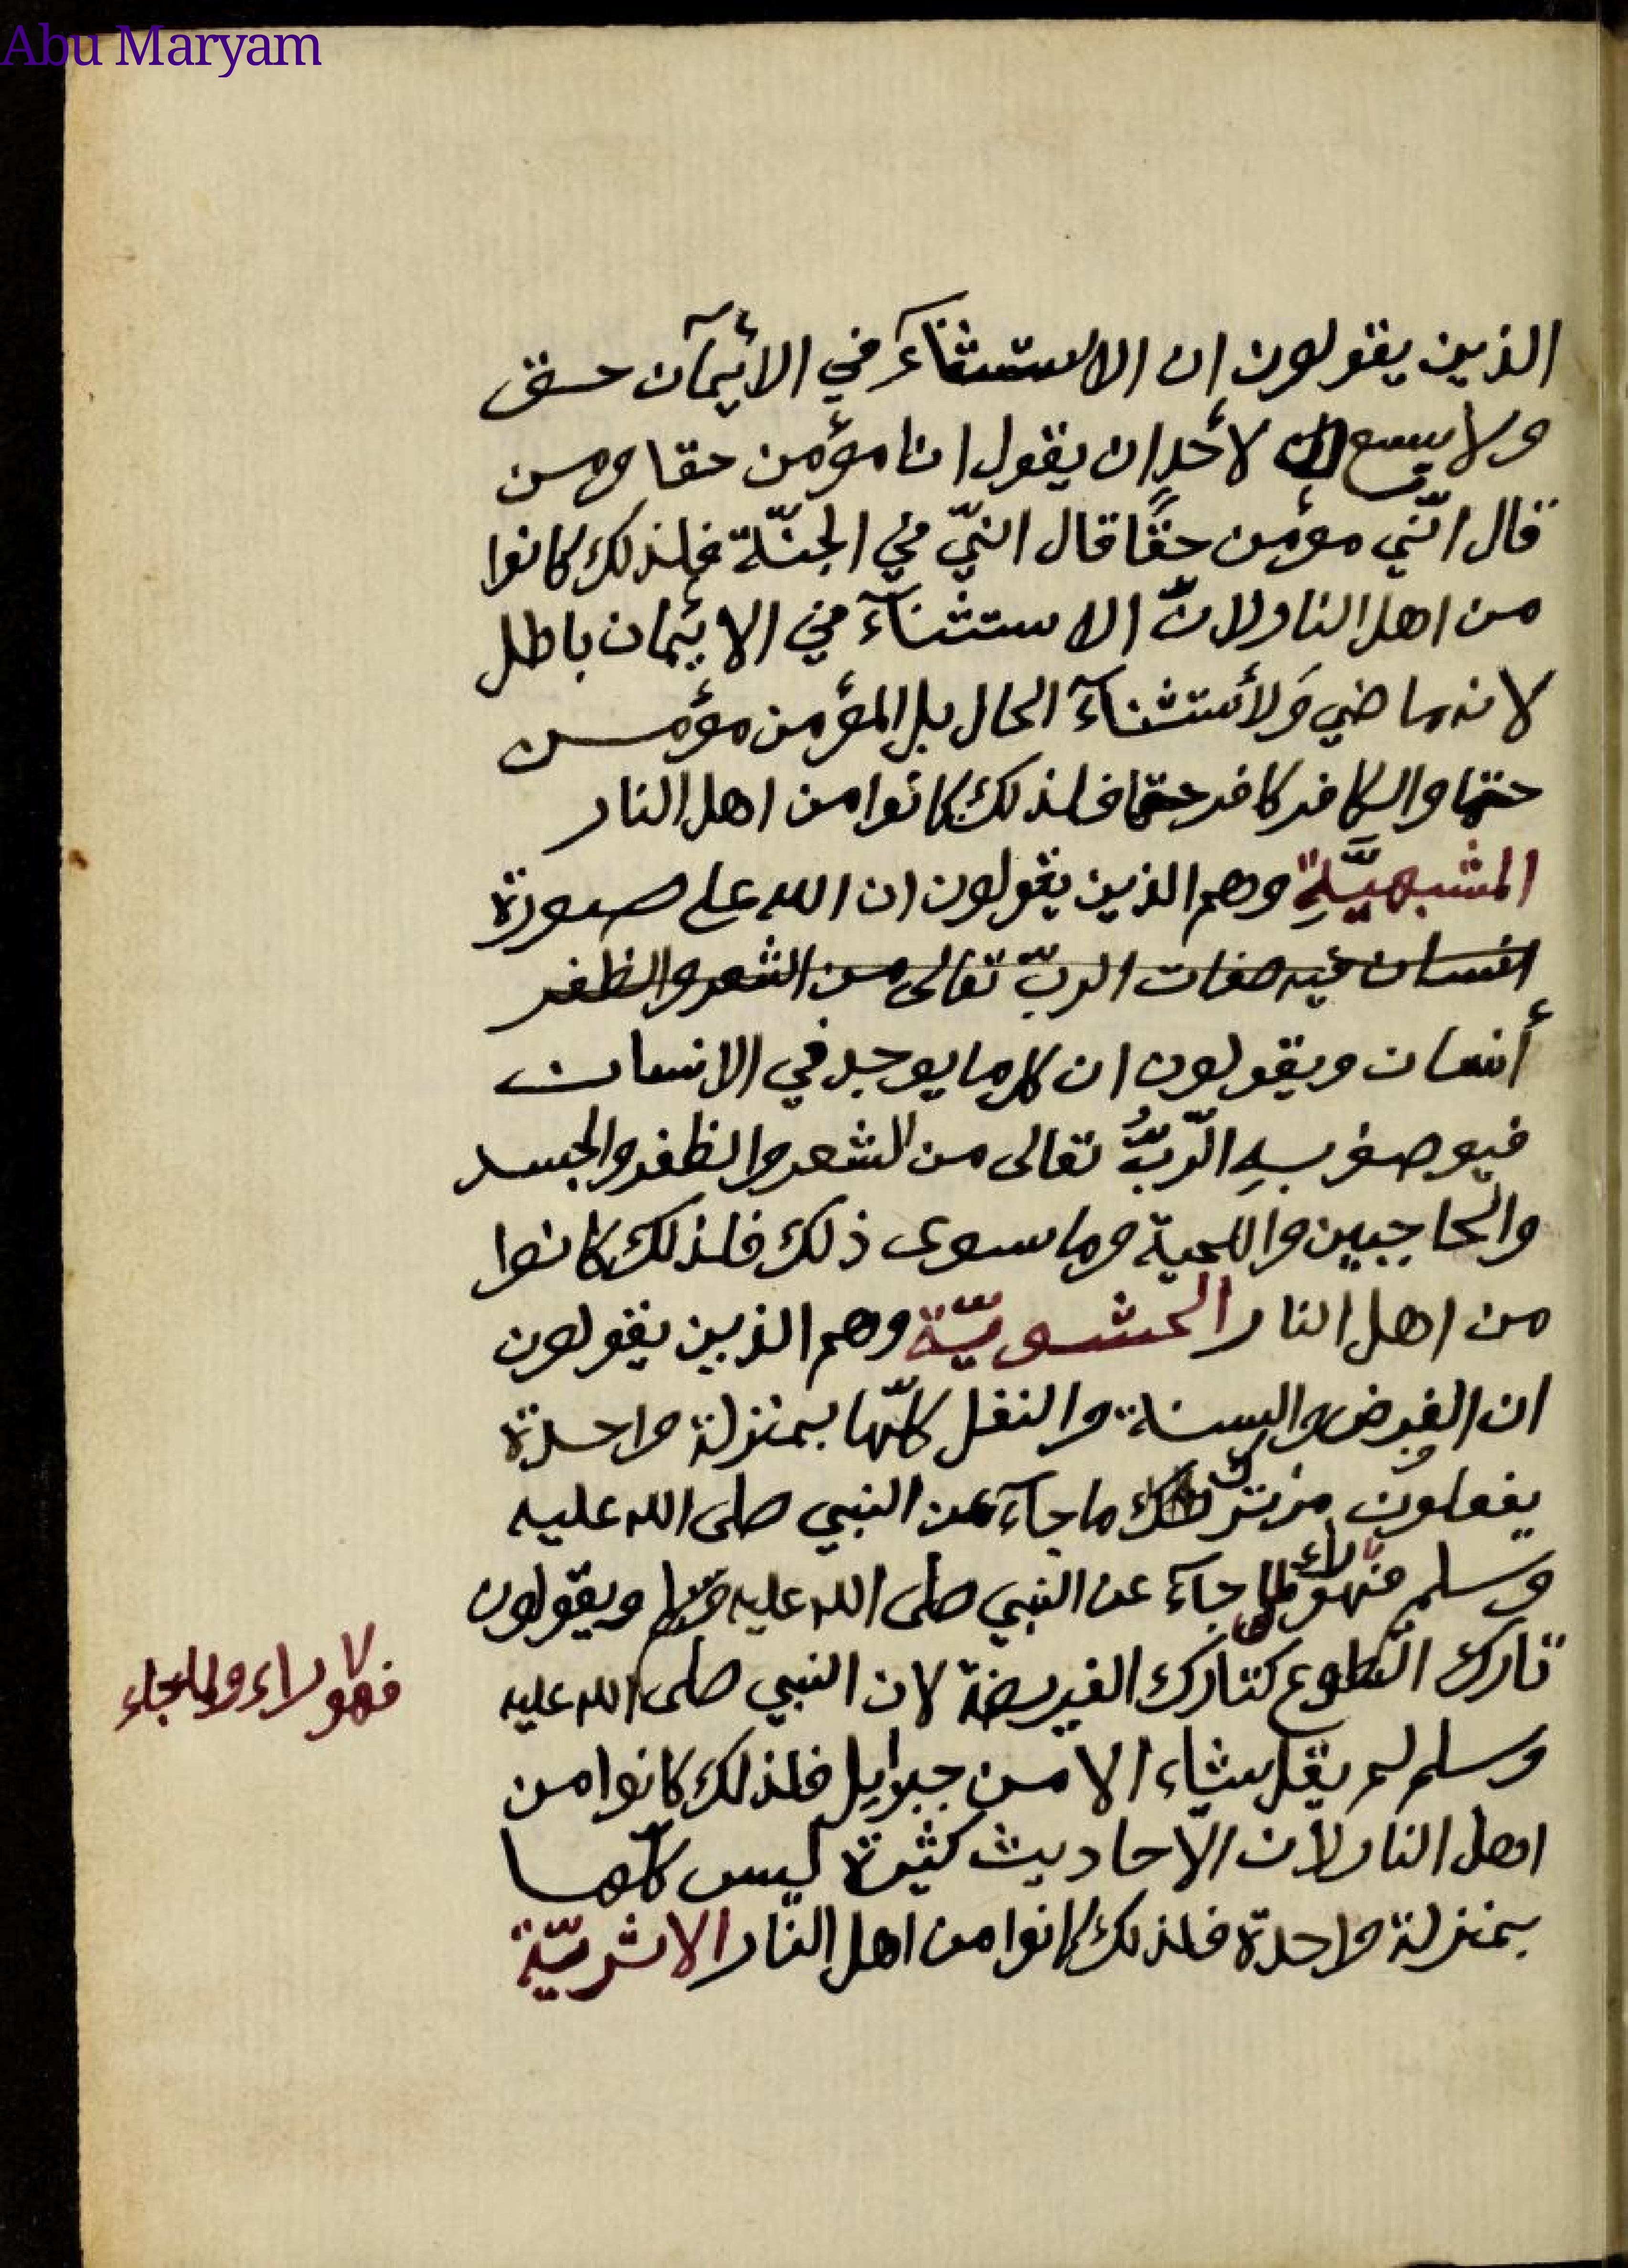 Abu Maryam
الذين يقولون ان الاستثنآءَ في الأيمآن حق
ولا يسع لاحدٍ ان يقول انا مؤمن حقا ومن
قال انّني مؤمن حقًّا قال انّيّ في الجنّة فلذلك كانوا
من اهل النار لانّ الاستثنآء في الايمان باطل
لانه ماضي وَلأستثنآء الحال بل المؤمن مؤمن
حقا والكافر كافر حقا فلذلك كانوا من اهل النار
المشبهيَّةِ وهم الذين يقولون ان الله على صورة
انسان فيه صفات الربّ تعالى من الشعر والظفر
أنسان ويقولون ان كل ما يوجد في الانسان
فيوصف بهِ الرّبُّ تعالى من الشعر والظفر والجسد
والحاجبين واللحية وما سوى ذلك فلذلك كانوا
من اهل النار الحشويّة وهم الذين يقولون
ان الفرض والسنة والنفل كلّها بمنزلة واحدة
يفعلون من ترك ما جآء عن النبي صلى الله عليه
وسلم جآء عن النبي صلى الله عليه وسلم ويقولون
تارك التطوع كتارك الفريضة لان النبي صلى الله عليه
فهولاء ولما جاء
وسلم لم يقل شياء الا من جبرايل فلذلك كانوا من
اهل النار لان الاحاديث كثيرة ليس كلها
بمنزلة واحدة فلذلك كانوا من اهل النار الاثريّة